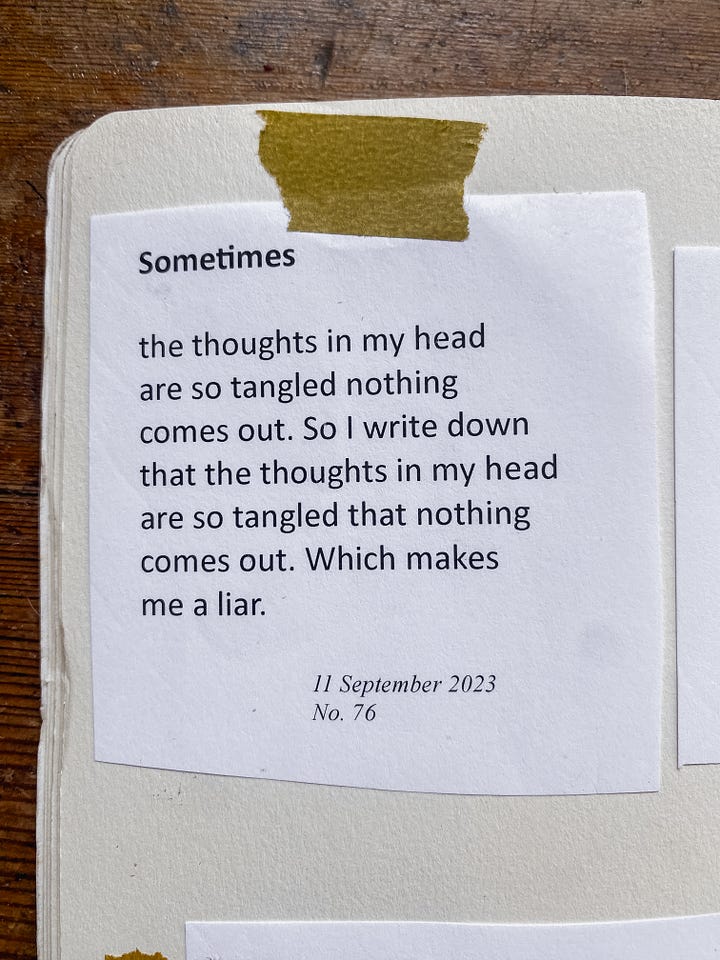 Sometimes
the thoughts in my head
are so tangled nothing
comes out. So I write down
that the thoughts in my head
are so tangled that nothing
comes out. Which makes
me a liar.
11 September 2023
No. 76